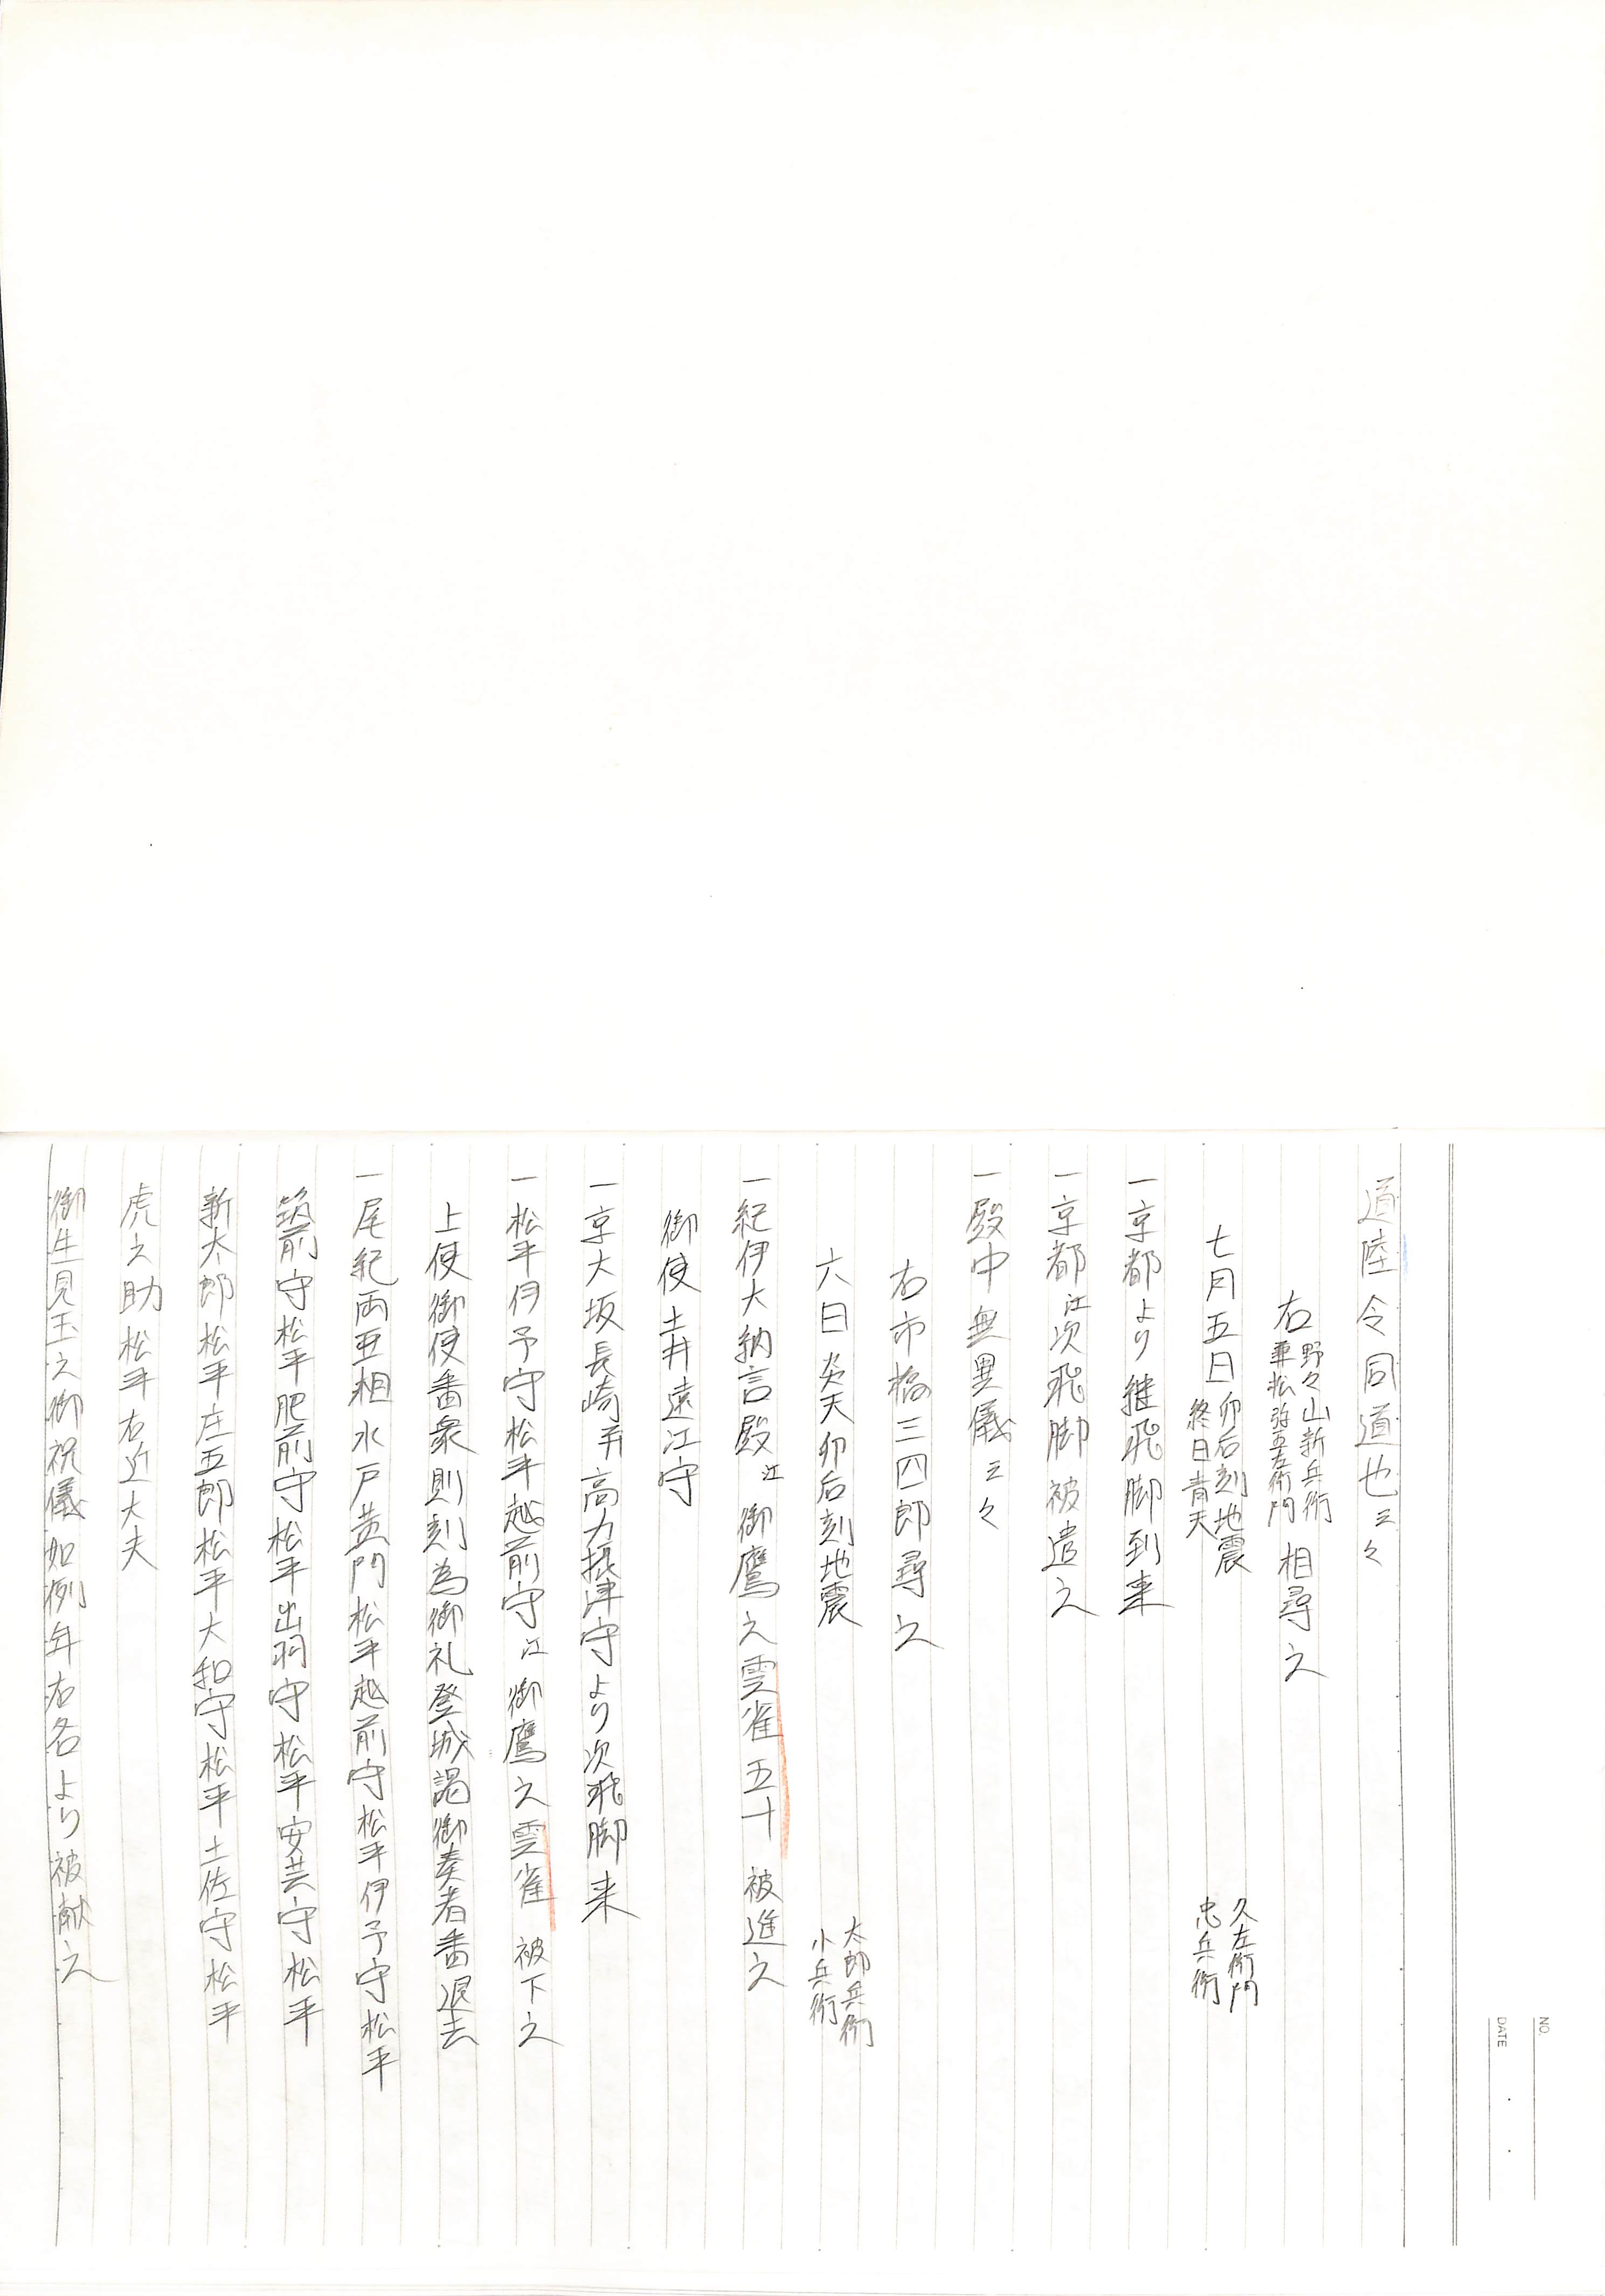 NO.
DATE
道陸令同道也云々
右 野々山新兵衛 兼松弥五左衛門 相尋之
七月五日 卯后刻地震 終日青天 久左衛門 忠兵衛
一京都より継飛脚到来
一京都江次飛脚被遣之
一殿中無異儀云々
右市橋三四郎尋之
六日炎天卯后刻地震 太郎兵衛 小兵衛
一紀伊大納言殿江御鷹之雲雀五十被進之
御使土井遠江守
一京大坂長崎并高力摂津守より次飛脚来
一松平伊予守松平越前守江御鷹之雲雀被下之
上使御使番衆則刻為御礼登城謁御奏者番退去
一尾紀両亜相水戸黄門松平越前守松平伊予守松平
筑前守松平肥前守松平出羽守松平安芸守松平
新太郎松平庄五郎松平大和守松平土佐守松平
虎之助松平右近大夫
御生見玉之御祝儀如例年右各より被献之